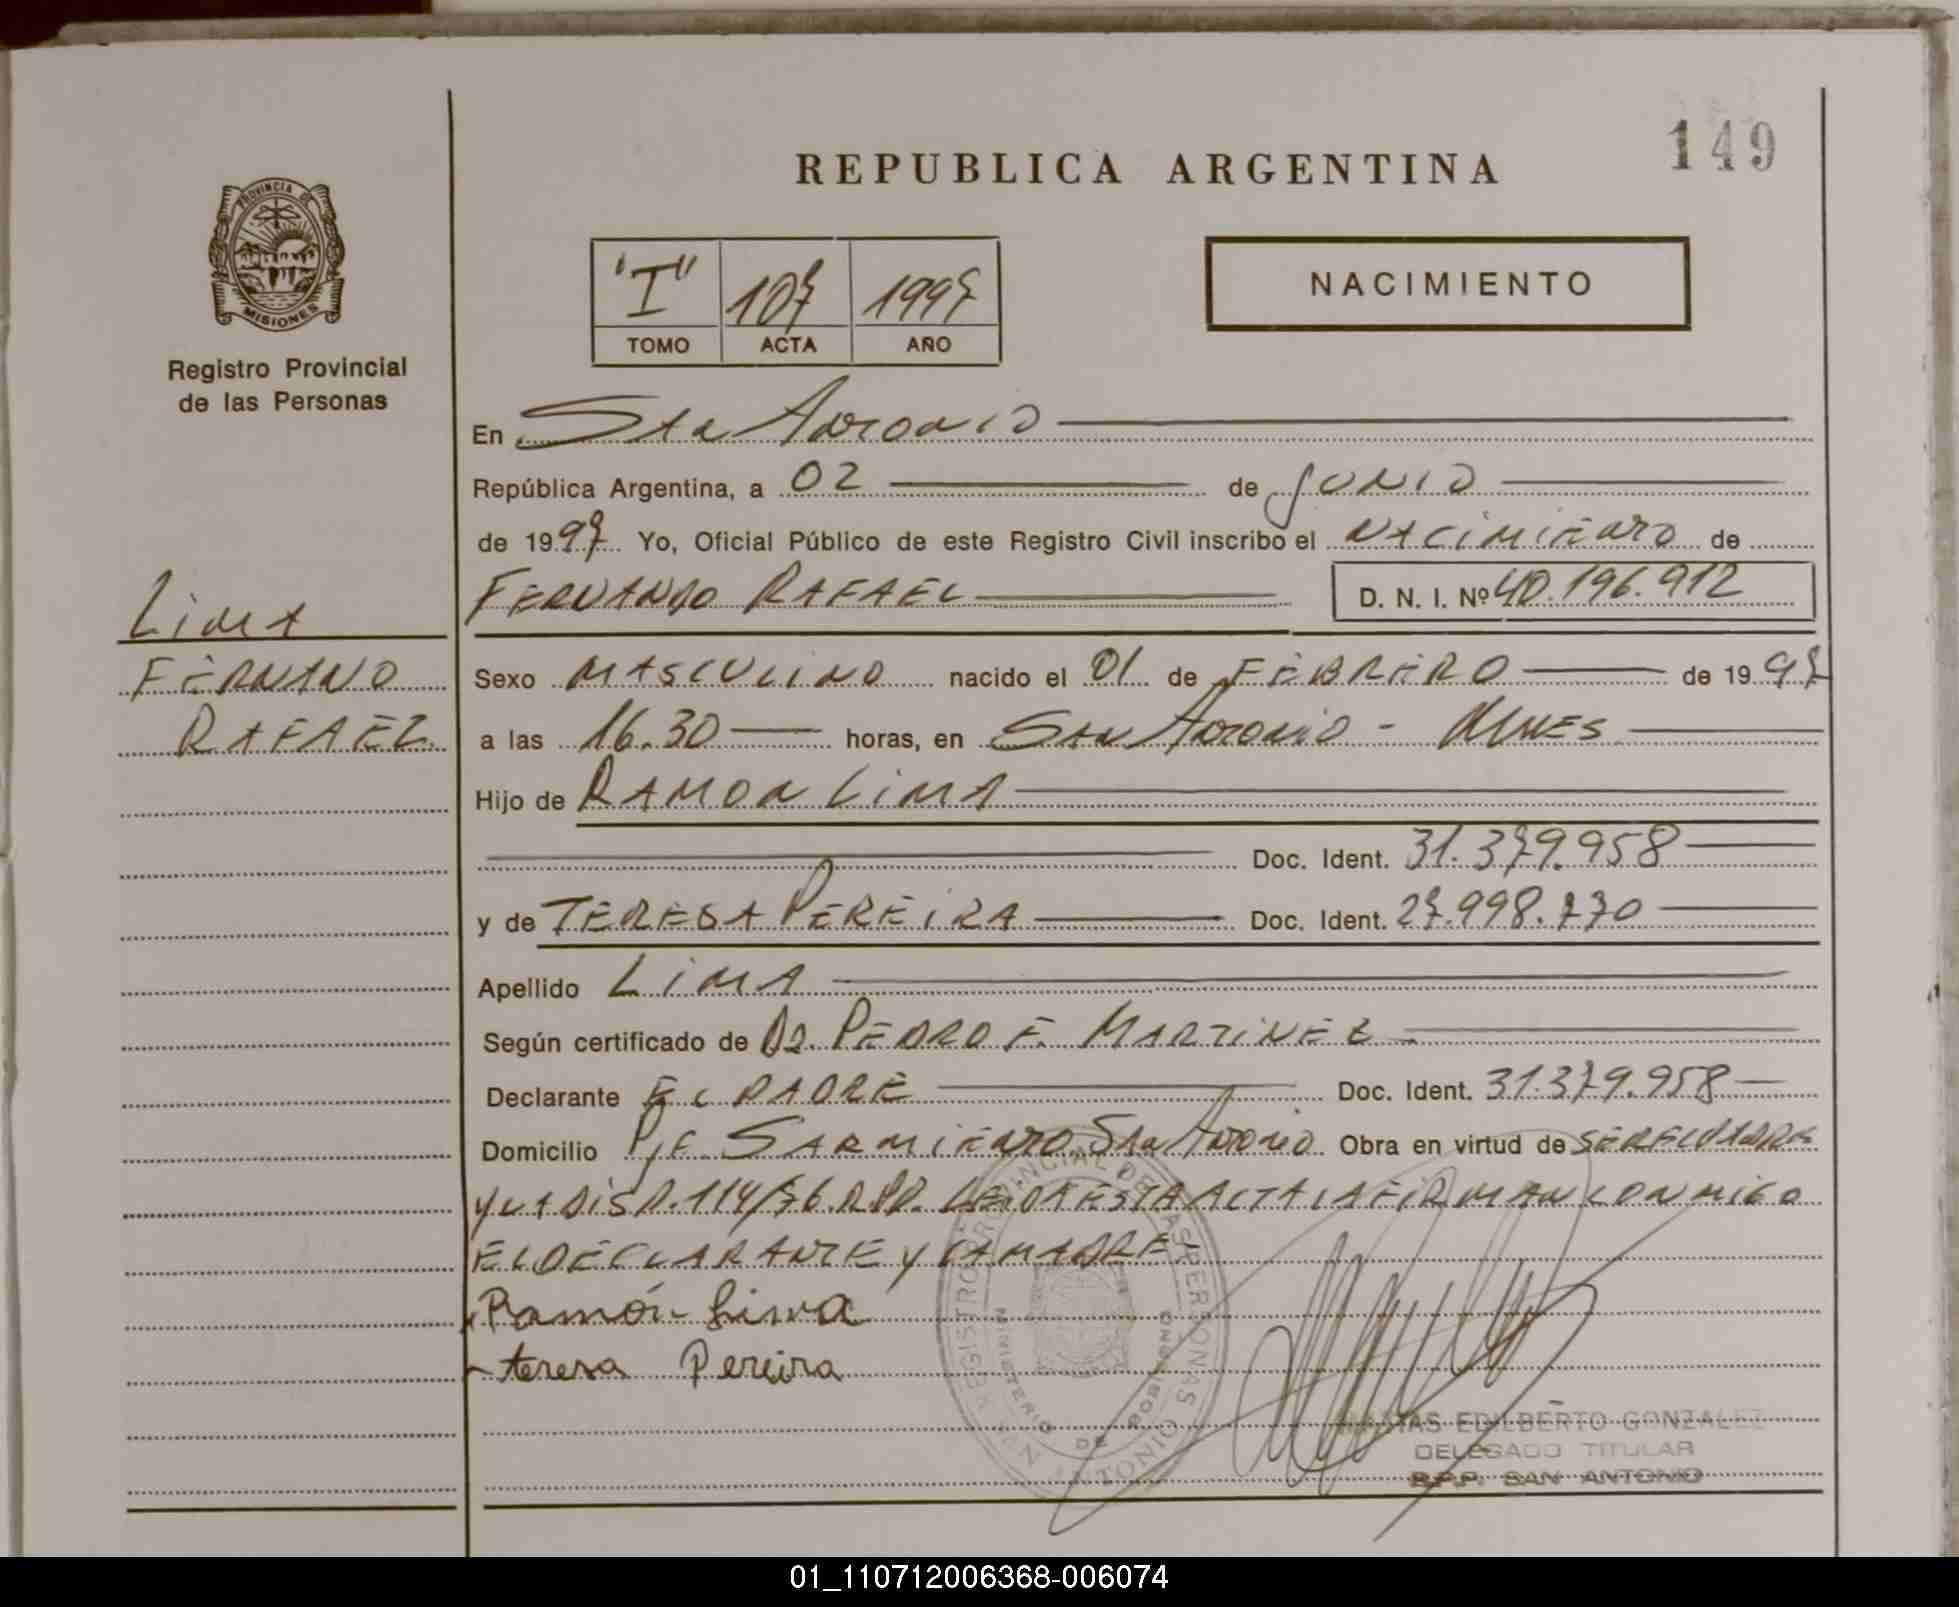 149
REPUBLICA ARGENTINA
PROVINCIA DE
MISIONES
Registro Provincial
de las Personas
"I" 107 1997
TOMO ACTA AÑO
NACIMIENTO
En San Antonio
República Argentina, a 02 de JUNIO
de 1997 Yo, Oficial Público de este Registro Civil inscribo el NACIMIENTO de
FERNANDO RAFAEL D. N. I. Nº 40.196.912
LIMA
FERNANO
RAFAEL
Sexo MASCULINO nacido el 01 de FEBRERO de 1997
a las 16.30 horas, en San Antonio - Mnes
Hijo de RAMON LIMA
Doc. Ident. 31.379.958
y de TERESA PEREIRA Doc. Ident. 27.998.770
Apellido LIMA
Según certificado de Dr. PEDRO F. MARTINEZ
Declarante EL PADRE Doc. Ident. 31.379.958
Domicilio Pje SARMIENTO San Antonio Obra en virtud de
Y LA DISP. 114/96. R.P.P. LEIDA ESTA ACTA LA FIRMAN CONMIGO
EL DECLARANTE Y LA MADRE
Ramón Lima
teresa Pereira
REGISTRO PROVINCIAL DE LAS PERSONAS
MINISTERIO DE GOBIERNO
SAN ANTONIO
EDILBERTO GONZALEZ
DELEGADO TITULAR
R.P.P. SAN ANTONIO
01_110712006368-006074